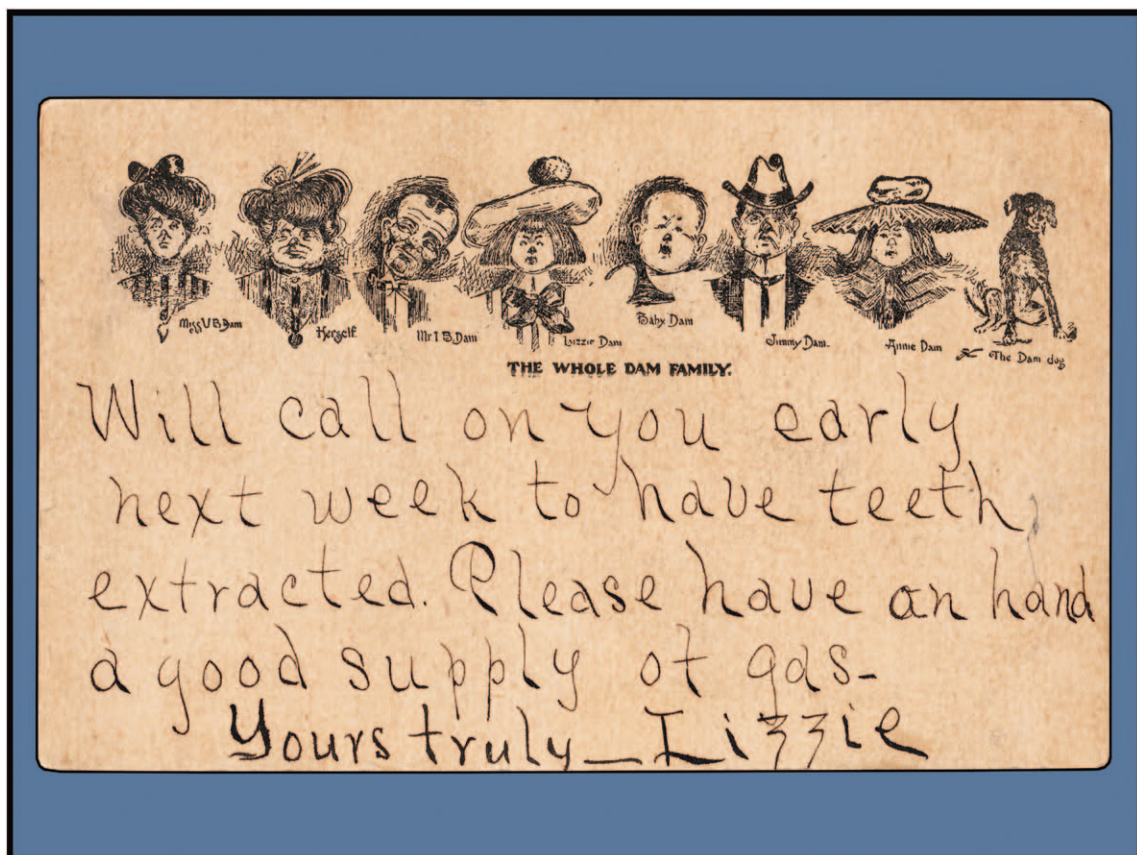 Miss U B Dam
Herself.
Mr I B Dam
Lizzie Dam
Baby Dam
Jimmy Dam.
Annie Dam
The Dam dog
THE WHOLE DAM FAMILY.
Will call on you early
next week to have teeth
extracted. Please have on hand
a good supply of gas-
Yours truly_ Lizzie